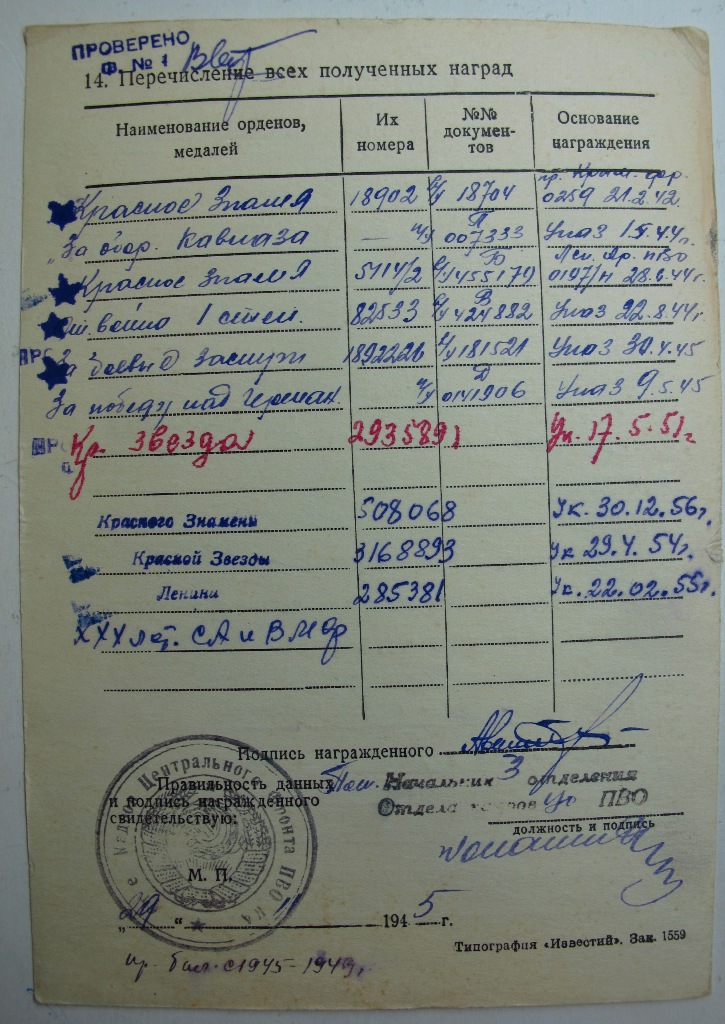 ПРОВЕРЕНО
Ф. № 1
14. Перечисление всех полученных наград
Наименование орденов, медалей
Их номера
№№ документов
Основание награждения
Красное Знамя 18902 18704 пр. Крым. фр. 0259 21.2.42.
"За обор. Кавказа — П 007333 Указ 1.5.44г.
Красное Знамя 5114/2 Б 455179 ПВО 0197/н 28.6.44г.
война I степ. 82533 В 424882 Указ 22.8.44г.
За боевые заслуги 1892226 181521 Указ 30.4.45
За победу над Герман. Д 0141906 Указ 9.5.45
Кр. Звезда 2935891 Ук. 17.5.51г.
Красного Знамени 508068 Ук. 30.12.56г.
Красной Звезды 3168893 Ук 29.4.54г.
Ленина 285381 Ук. 22.02.55г.
XXX лет. СА и ВМФ
Подпись награжденного
Правильность данных
и подпись награжденного
свидетельствую:
Пом. Начальник 3 отделения
Отдела кадров ПВО
должность и подпись
М. П.
Центрального фронта ПВО
„29 “ 11 1945 г.
Типография «Известий». Зак. 1559
с 1945-1949г.